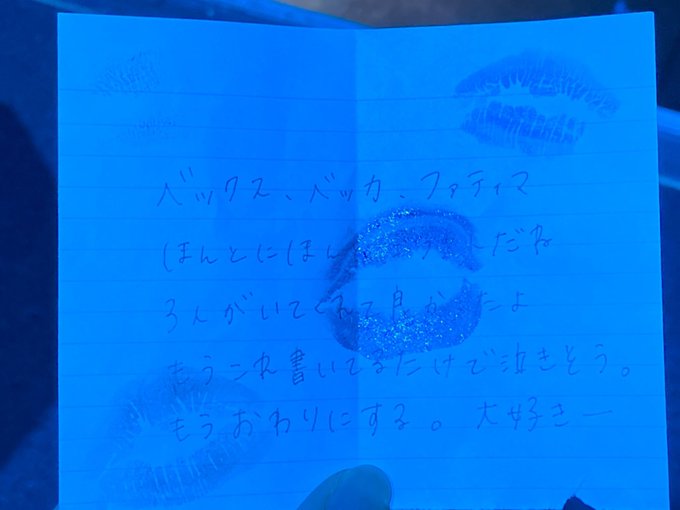 ベックス、ベッカ、ファティマ
ほんとにほん だね
3人がいてくれて良かったよ
もうこれ書いてるだけで泣きそう。
もうおわりにする。大好きー